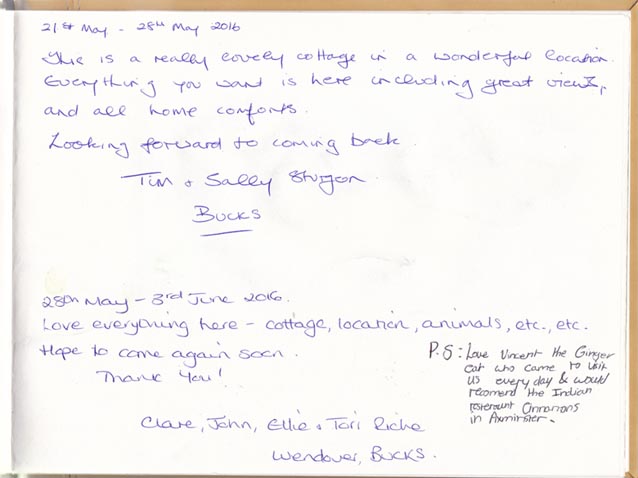 21st May - 28th May 2016
This is a really lovely cottage in a wonderful location.
Everything you want is here including great views,
and all home comforts.
Looking forward to coming back.
Tim & Sally Sturgon
Bucks
28th May - 3rd June 2016.
Love everything here - cottage, location, animals, etc., etc.
Hope to come again soon.
Thank You!
P.S: Love Vincent the Ginger
cat who came to visit
us every day & would
recomend the Indian
in Axminster.
Clare, John, Ellie & Tori Riche
Wendover, Bucks.